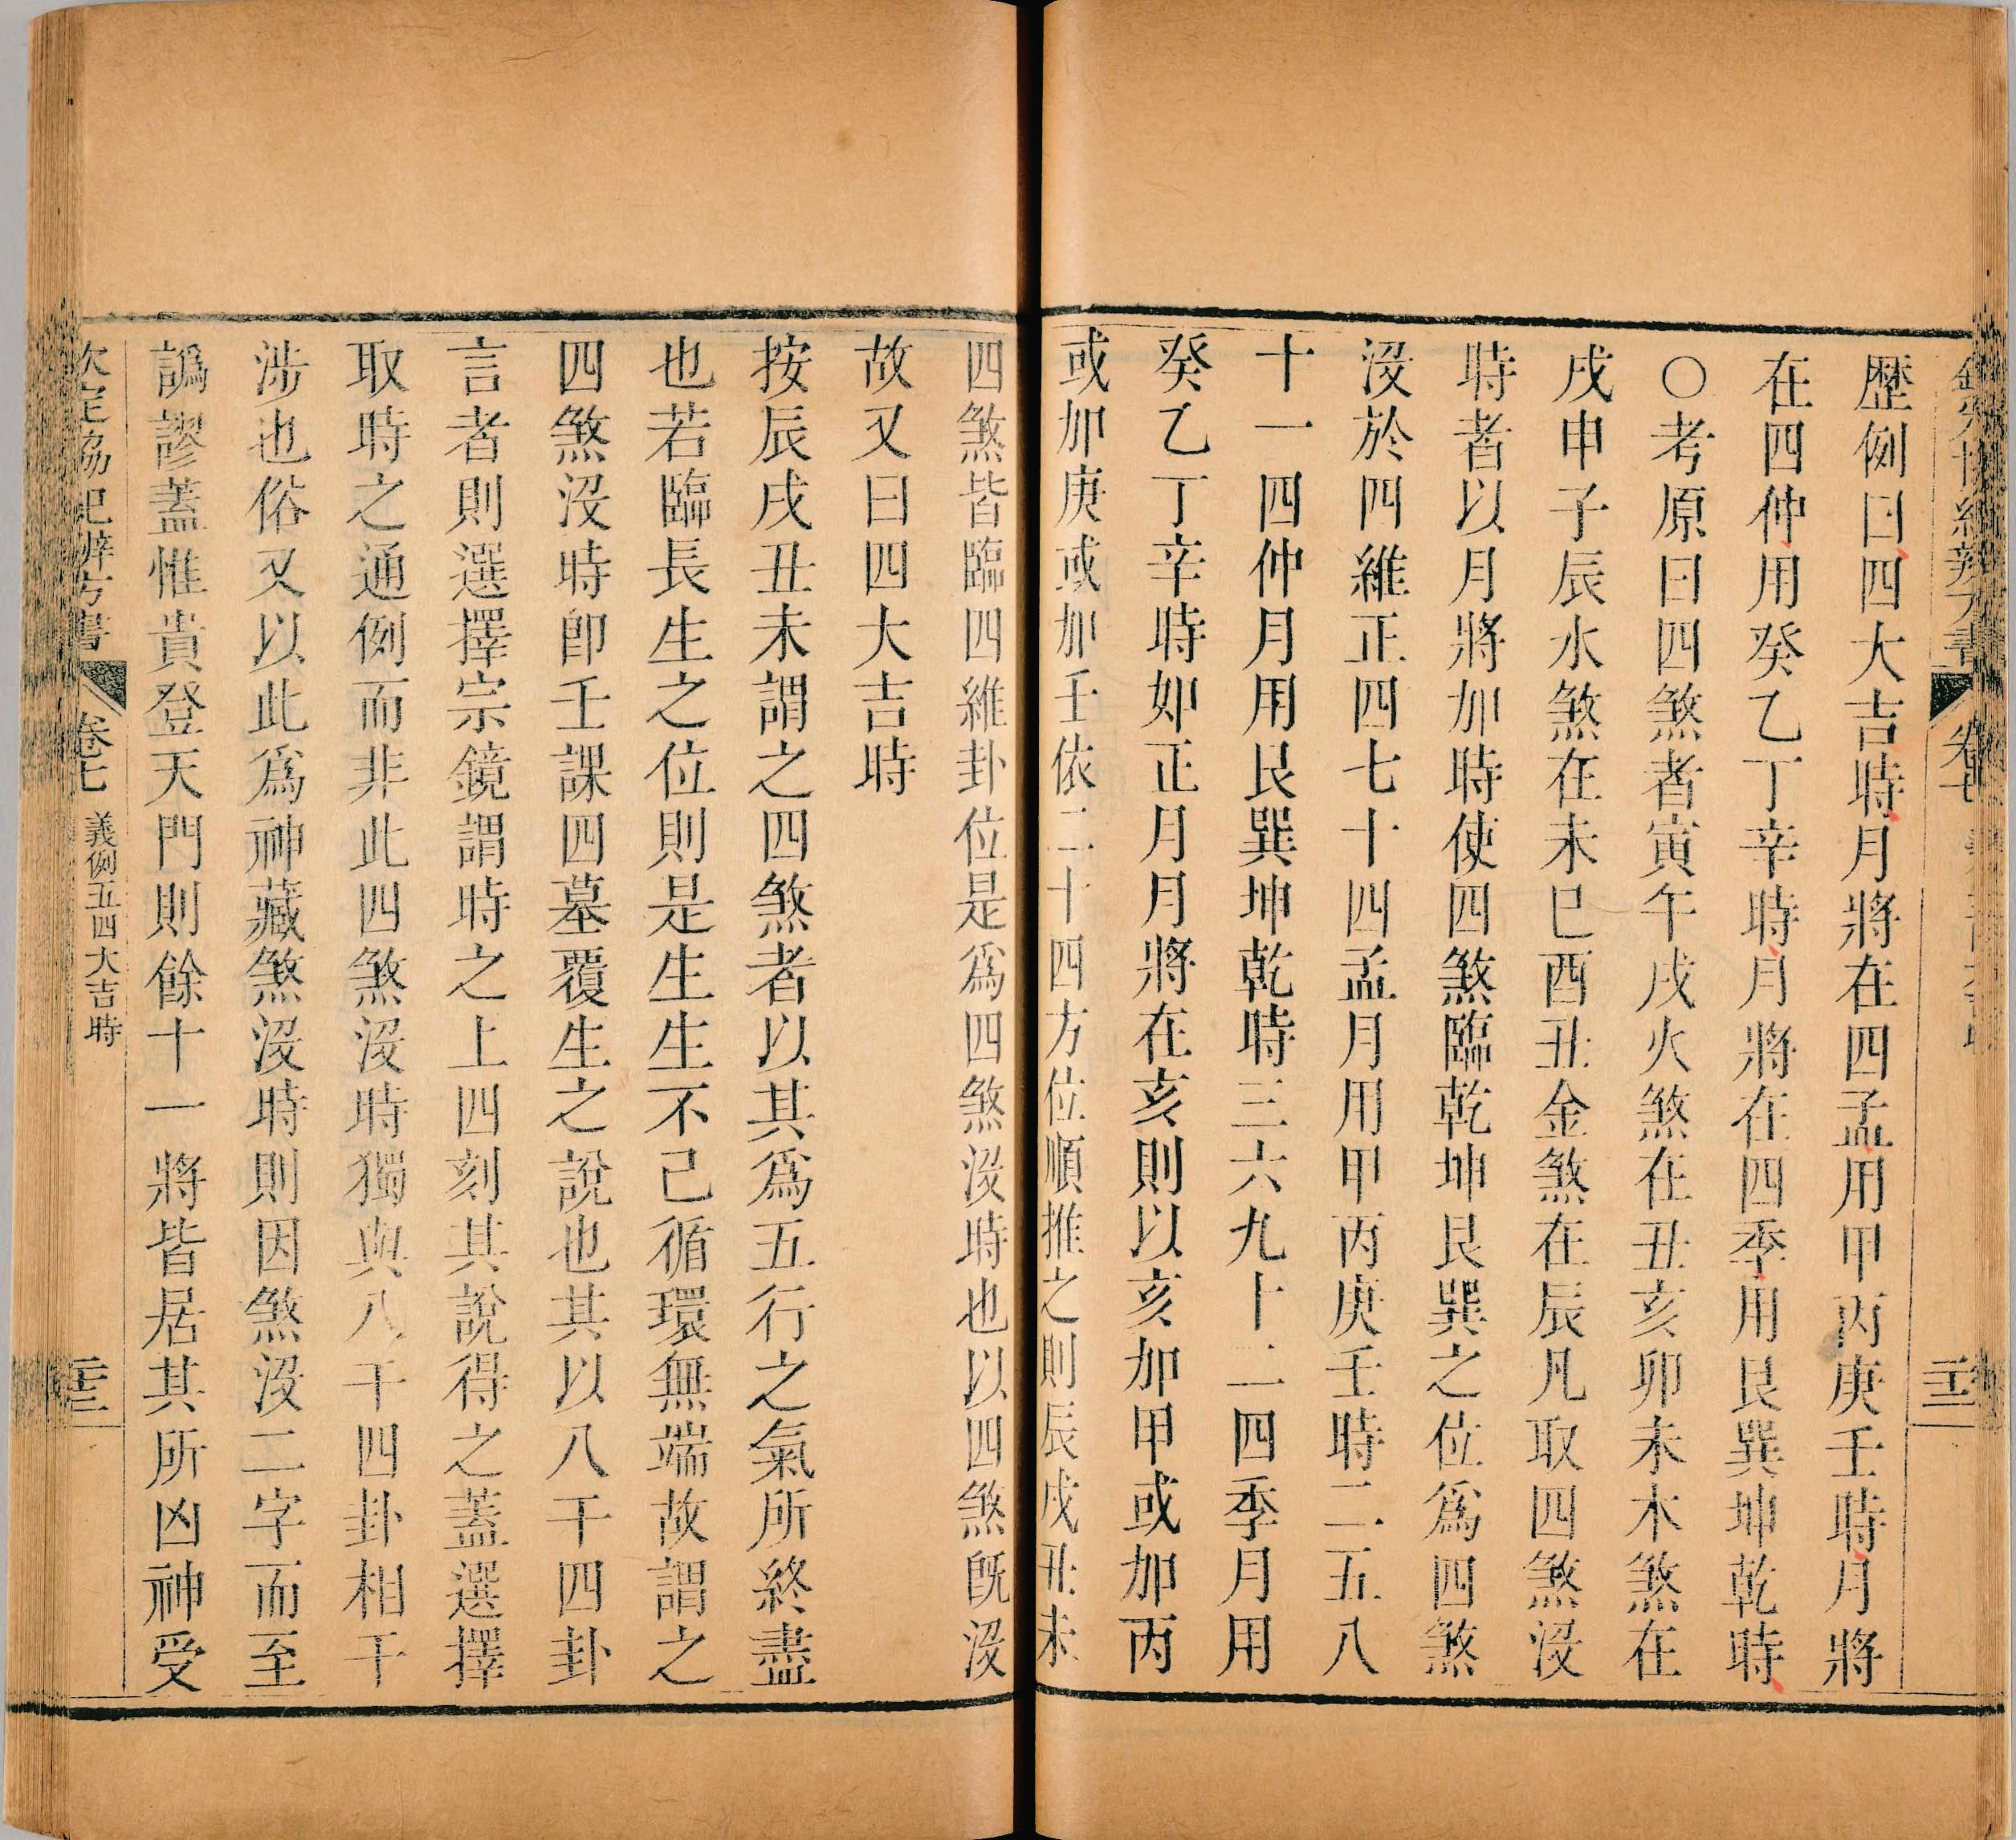 歷例曰四大吉時月將在四孟用甲丙庚壬時月將
在四仲用癸乙丁辛時月將在四季用艮巽坤乾時
○考原曰四煞者寅午戌火煞在丑亥卯未木煞在
戌申子辰水煞在未巳酉丑金煞在辰凡取四煞沒
時者以月將加時使四煞臨乾坤艮巽之位爲四煞
沒於四維正四七十四孟月用甲丙庚壬時二五八
十一四仲月用艮巽坤乾時三六九十二四季月用
癸乙丁辛時如正月月將在亥則以亥加甲或加丙
或加庚或加壬依二十四方位順推之則辰戌丑未
四煞皆臨四維卦位是爲四煞沒時也以四煞旣沒
故又曰四大吉時
按辰戌丑未謂之四煞者以其爲五行之氣所終盡
也若臨長生之位則是生生不已循環無端故謂之
四煞沒時卽壬課四墓覆生之說也其以八干四卦
言者則選擇宗鏡謂時之上四刻其說得之蓋選擇
取時之通例而非此四煞沒時獨與八干四卦相干
涉也俗又以此爲神藏煞沒時則因煞沒二字而至
譌謬蓋惟貴登天門則餘十一將皆居其所凶神受
欽定協紀辨方書 卷七 義例五四大吉時 二十三